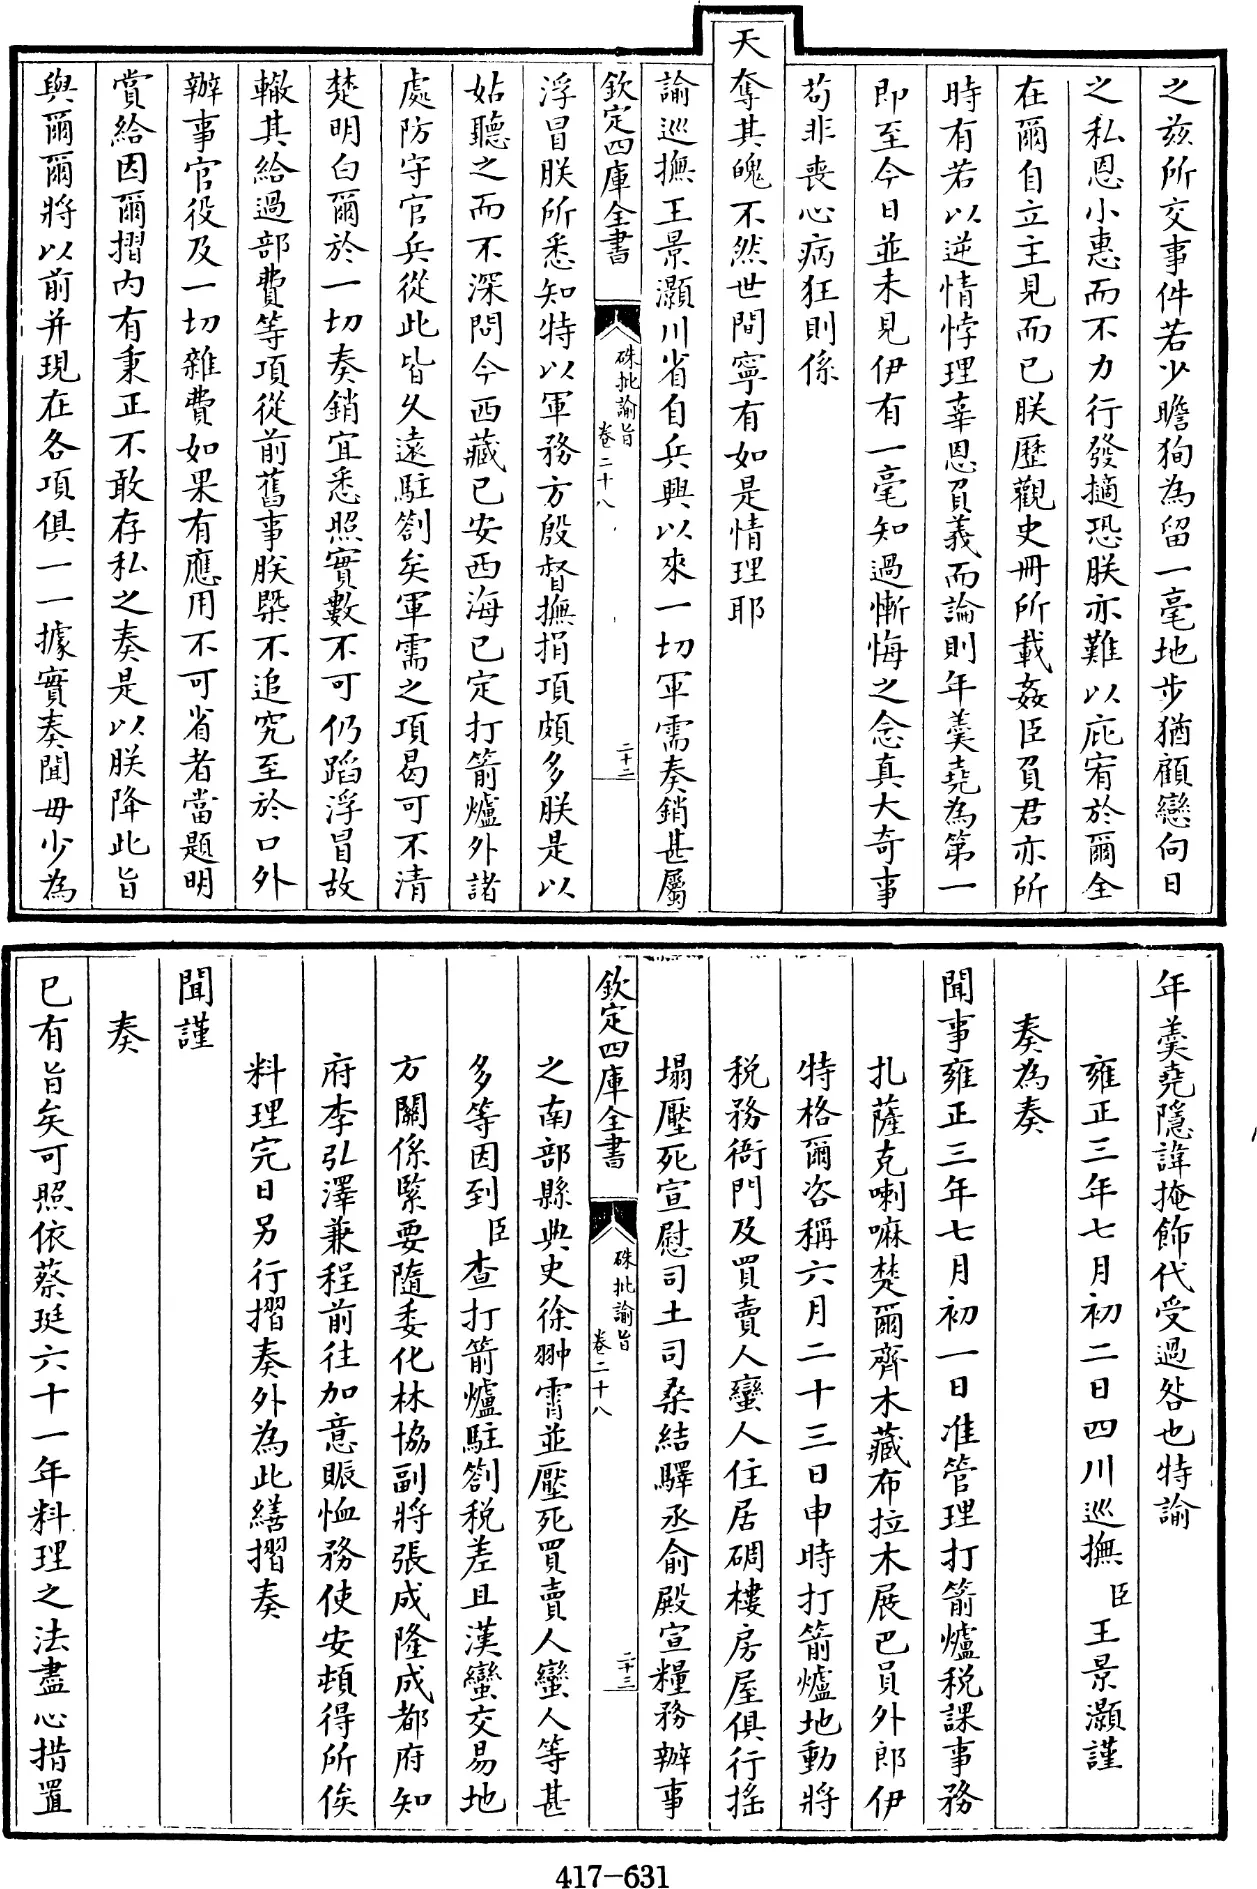 之兹所交事件若少瞻狥為留一毫地步猶顧戀向日
之私恩小惠而不力行發摘恐朕亦難以庇宥於爾全
在爾自立主見而已朕歷觀史冊所載姦臣負君亦所
時有若以逆情悖理辜恩負義而論則年羹堯為第一
即至今日並未見伊有一毫知過慚悔之念真大奇事
苟非喪心病狂則係
天奪其魄不然世間寧有如是情理耶
諭巡撫王景灝川省自兵興以來一切軍需奏銷甚屬
欽定四庫全書
硃批諭旨
卷二十八
二十二
浮冒朕所悉知特以軍務方殷督撫捐項頗多朕是以
姑聽之而不深問今西藏已安西海已定打箭爐外諸
處防守官兵從此皆久遠駐劄矣軍需之項曷可不清
楚明白爾於一切奏銷宜悉照實數不可仍蹈浮冒故
轍其給過部費等項從前舊事朕槩不追究至於口外
辦事官役及一切雜費如果有應用不可省者當題明
賞給因爾摺内有秉正不敢存私之奏是以朕降此旨
與爾爾將以前并現在各項俱一一據實奏聞毋少為
年羹堯隱諱掩飾代受過咎也特諭
雍正三年七月初二日四川巡撫臣王景灝謹
奏為奏
聞事雍正三年七月初一日准管理打箭爐税課事務
扎薩克喇嘛楚爾齊木藏布拉木展巴員外郎伊
特格爾咨稱六月二十三日申時打箭爐地動將
税務衙門及買賣人蠻人住居碉樓房屋俱行搖
塌壓死宣慰司土司桑結驛丞俞殿宣糧務辦事
欽定四庫全書
硃批諭旨
卷二十八
二十三
之南部縣典史徐翀霄並壓死買賣人蠻人等甚
多等因到臣查打箭爐駐劄税差且漢蠻交易地
方關係緊要隨委化林協副將張成隆成都府知
府李弘澤兼程前往加意賑恤務使安頓得所俟
料理完日另行摺奏外為此繕摺奏
聞謹
奏
已有旨矣可照依蔡珽六十一年料理之法盡心措置
417-631